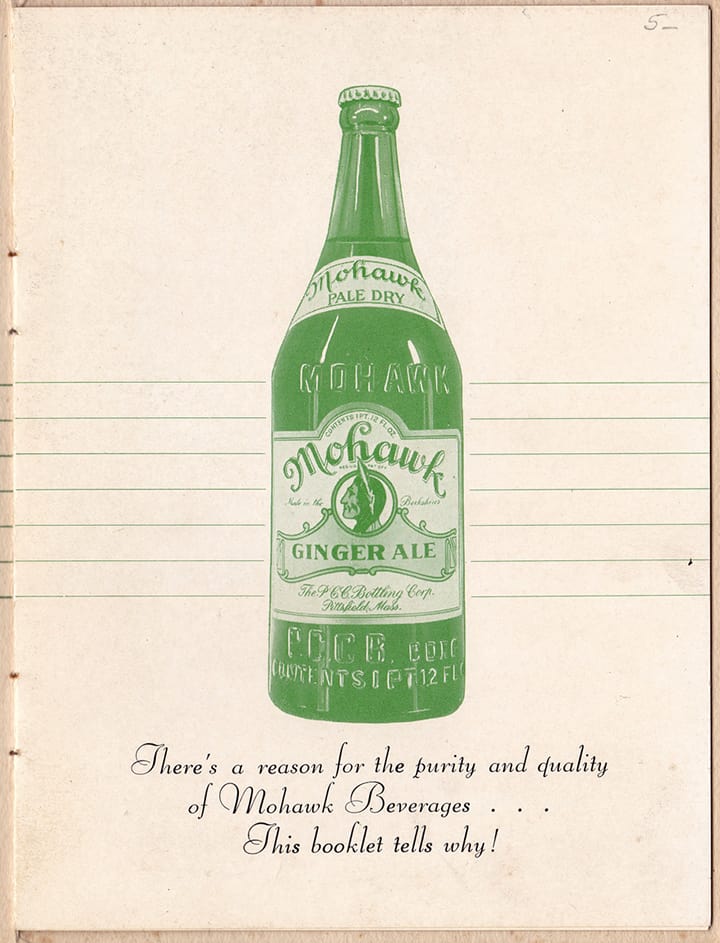 5-
Mohawk
PALE DRY
MOHAWK
CONTENTS 1 PT. 12 FL. OZ.
Mohawk
Made in the Berkshires
GINGER ALE
The P.C.C. Bottling Corp.
Pittsfield, Mass.
P.C.C.B. CORP
CONTENTS 1 PT 12 FL
There's a reason for the purity and quality
of Mohawk Beverages . . .
This booklet tells why!